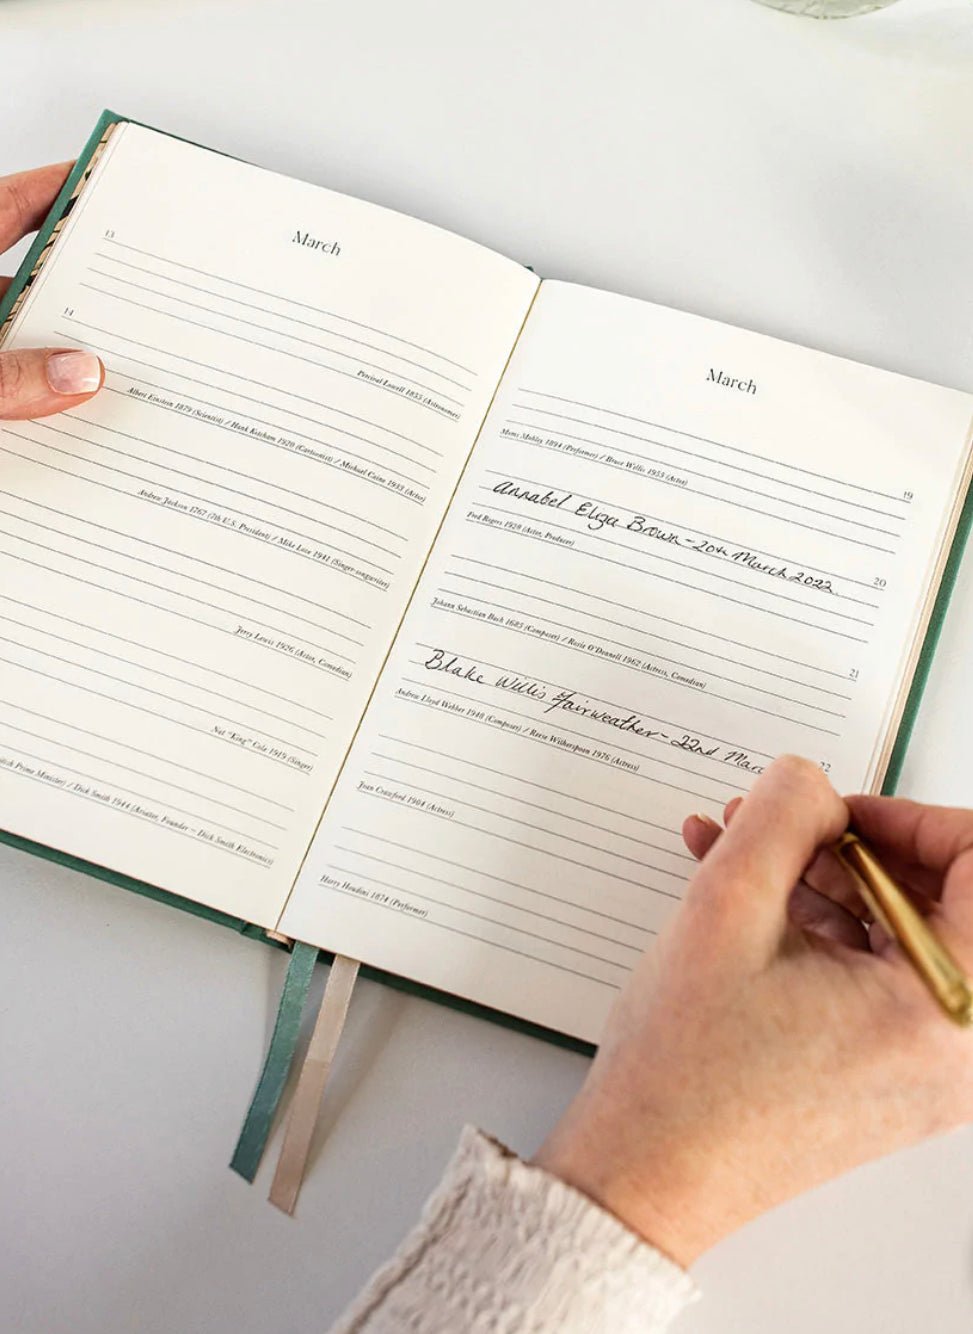 March
13
14
Percival Lowell 1855 (Astronomer)
Albert Einstein 1879 (Scientist) / Hank Ketcham 1920 (Cartoonist) / Michael Caine 1933 (Actor)
Andrew Jackson 1767 (7th U.S. President) / Mike Love 1941 (Singer-songwriter)
Jerry Lewis 1926 (Actor, Comedian)
Nat "King" Cole 1919 (Singer)
Prime Minister) / Dick Smith 1944 (Aviator, Founder – Dick Smith Electronics)
March
19
Moms Mabley 1894 (Performer) / Bruce Willis 1955 (Actor)
Annabel Eliza Brown - 20th March 2022
20
Fred Rogers 1928 (Actor, Producer)
21
Johann Sebastian Bach 1685 (Composer) / Rosie O'Donnell 1962 (Actress, Comedian)
Blake Willis Fairweather - 22nd Marc
22
Andrew Lloyd Webber 1948 (Composer) / Reese Witherspoon 1976 (Actress)
Joan Crawford 1904 (Actress)
Harry Houdini 1874 (Performer)